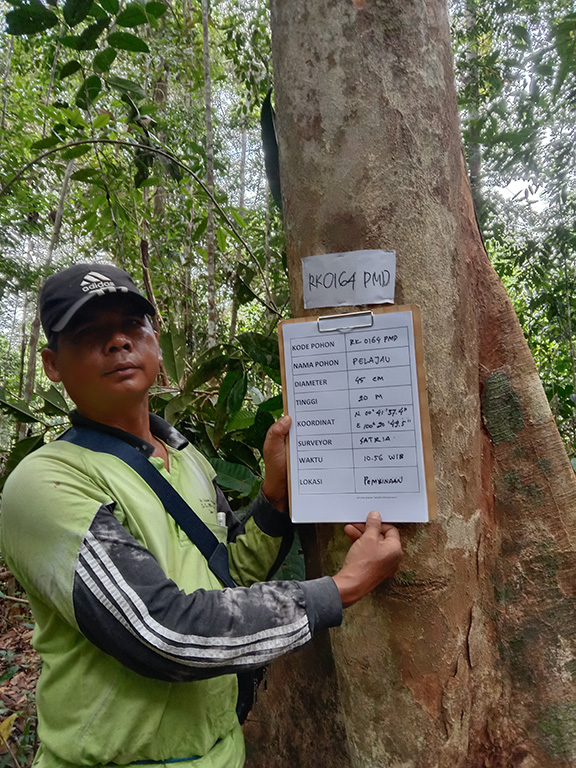 adidas
RK0164 PMD
KODE POHON RK 0164 PMD
NAMA POHON PELAJAU
DIAMETER 45 CM
TINGGI 20 M
KOORDINAT N 00° 41' 37.4"
E 100° 20' 49.5"
SURVEYOR SATRIA
WAKTU 10.56 WIB
LOKASI PEMBINAAN